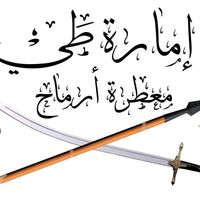 إمارة طَيْ
معطرة أرماح